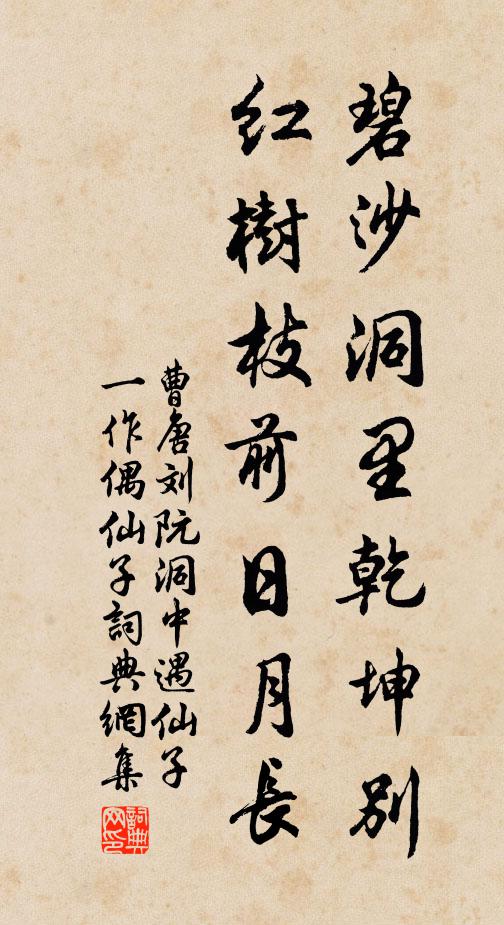 碧沙洞里乾坤別
红樹枝前日月長
曹唐刘阮洞中遇仙子
一作偶仙子詞典網集
詞典网印